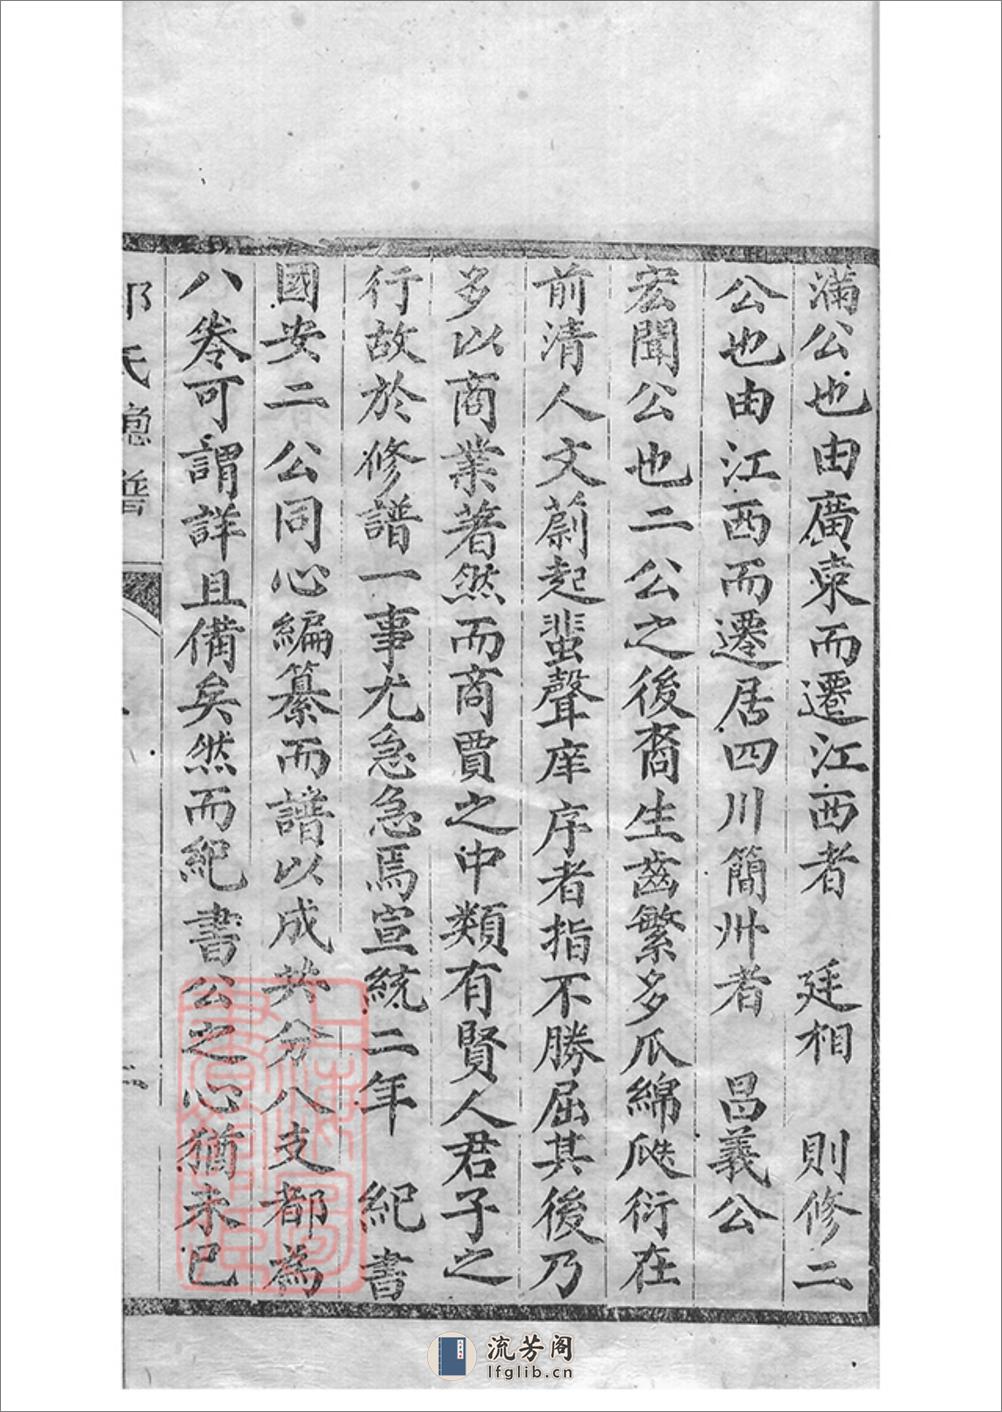 滿公也由廣東而遷江西者　廷相　則修二
公也由江西而遷居四川簡州者　昌義公
宏聞公也二公之後裔生齒繁多瓜綿瓞衍在
前清人文蔚起蜚聲庠序者指不勝屈其後乃
多以商業著然而商賈之中類有賢人君子之
行故於修譜一事尤急急焉宣統二年　紀書
國安二公同心編纂而譜以成共分八支都為
八卷可謂詳且備矣然而紀書公之心猶未已
氏總譜
二
流芳阁
lfglib.cn